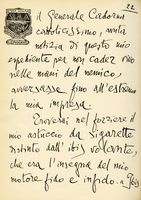 22
il Generale Cadorna
cattolicissimo, avuta
notizia di questo mio
espediente per non cader vivo
nelle mani del nemico,
avversasse fino all'estremo
la mia impresa.
Troverai nel forziere il
mio astuccio da sigarette
distinto dall'ibis volante,
che era l'insegna del mio
motore fido e infido. Ibis